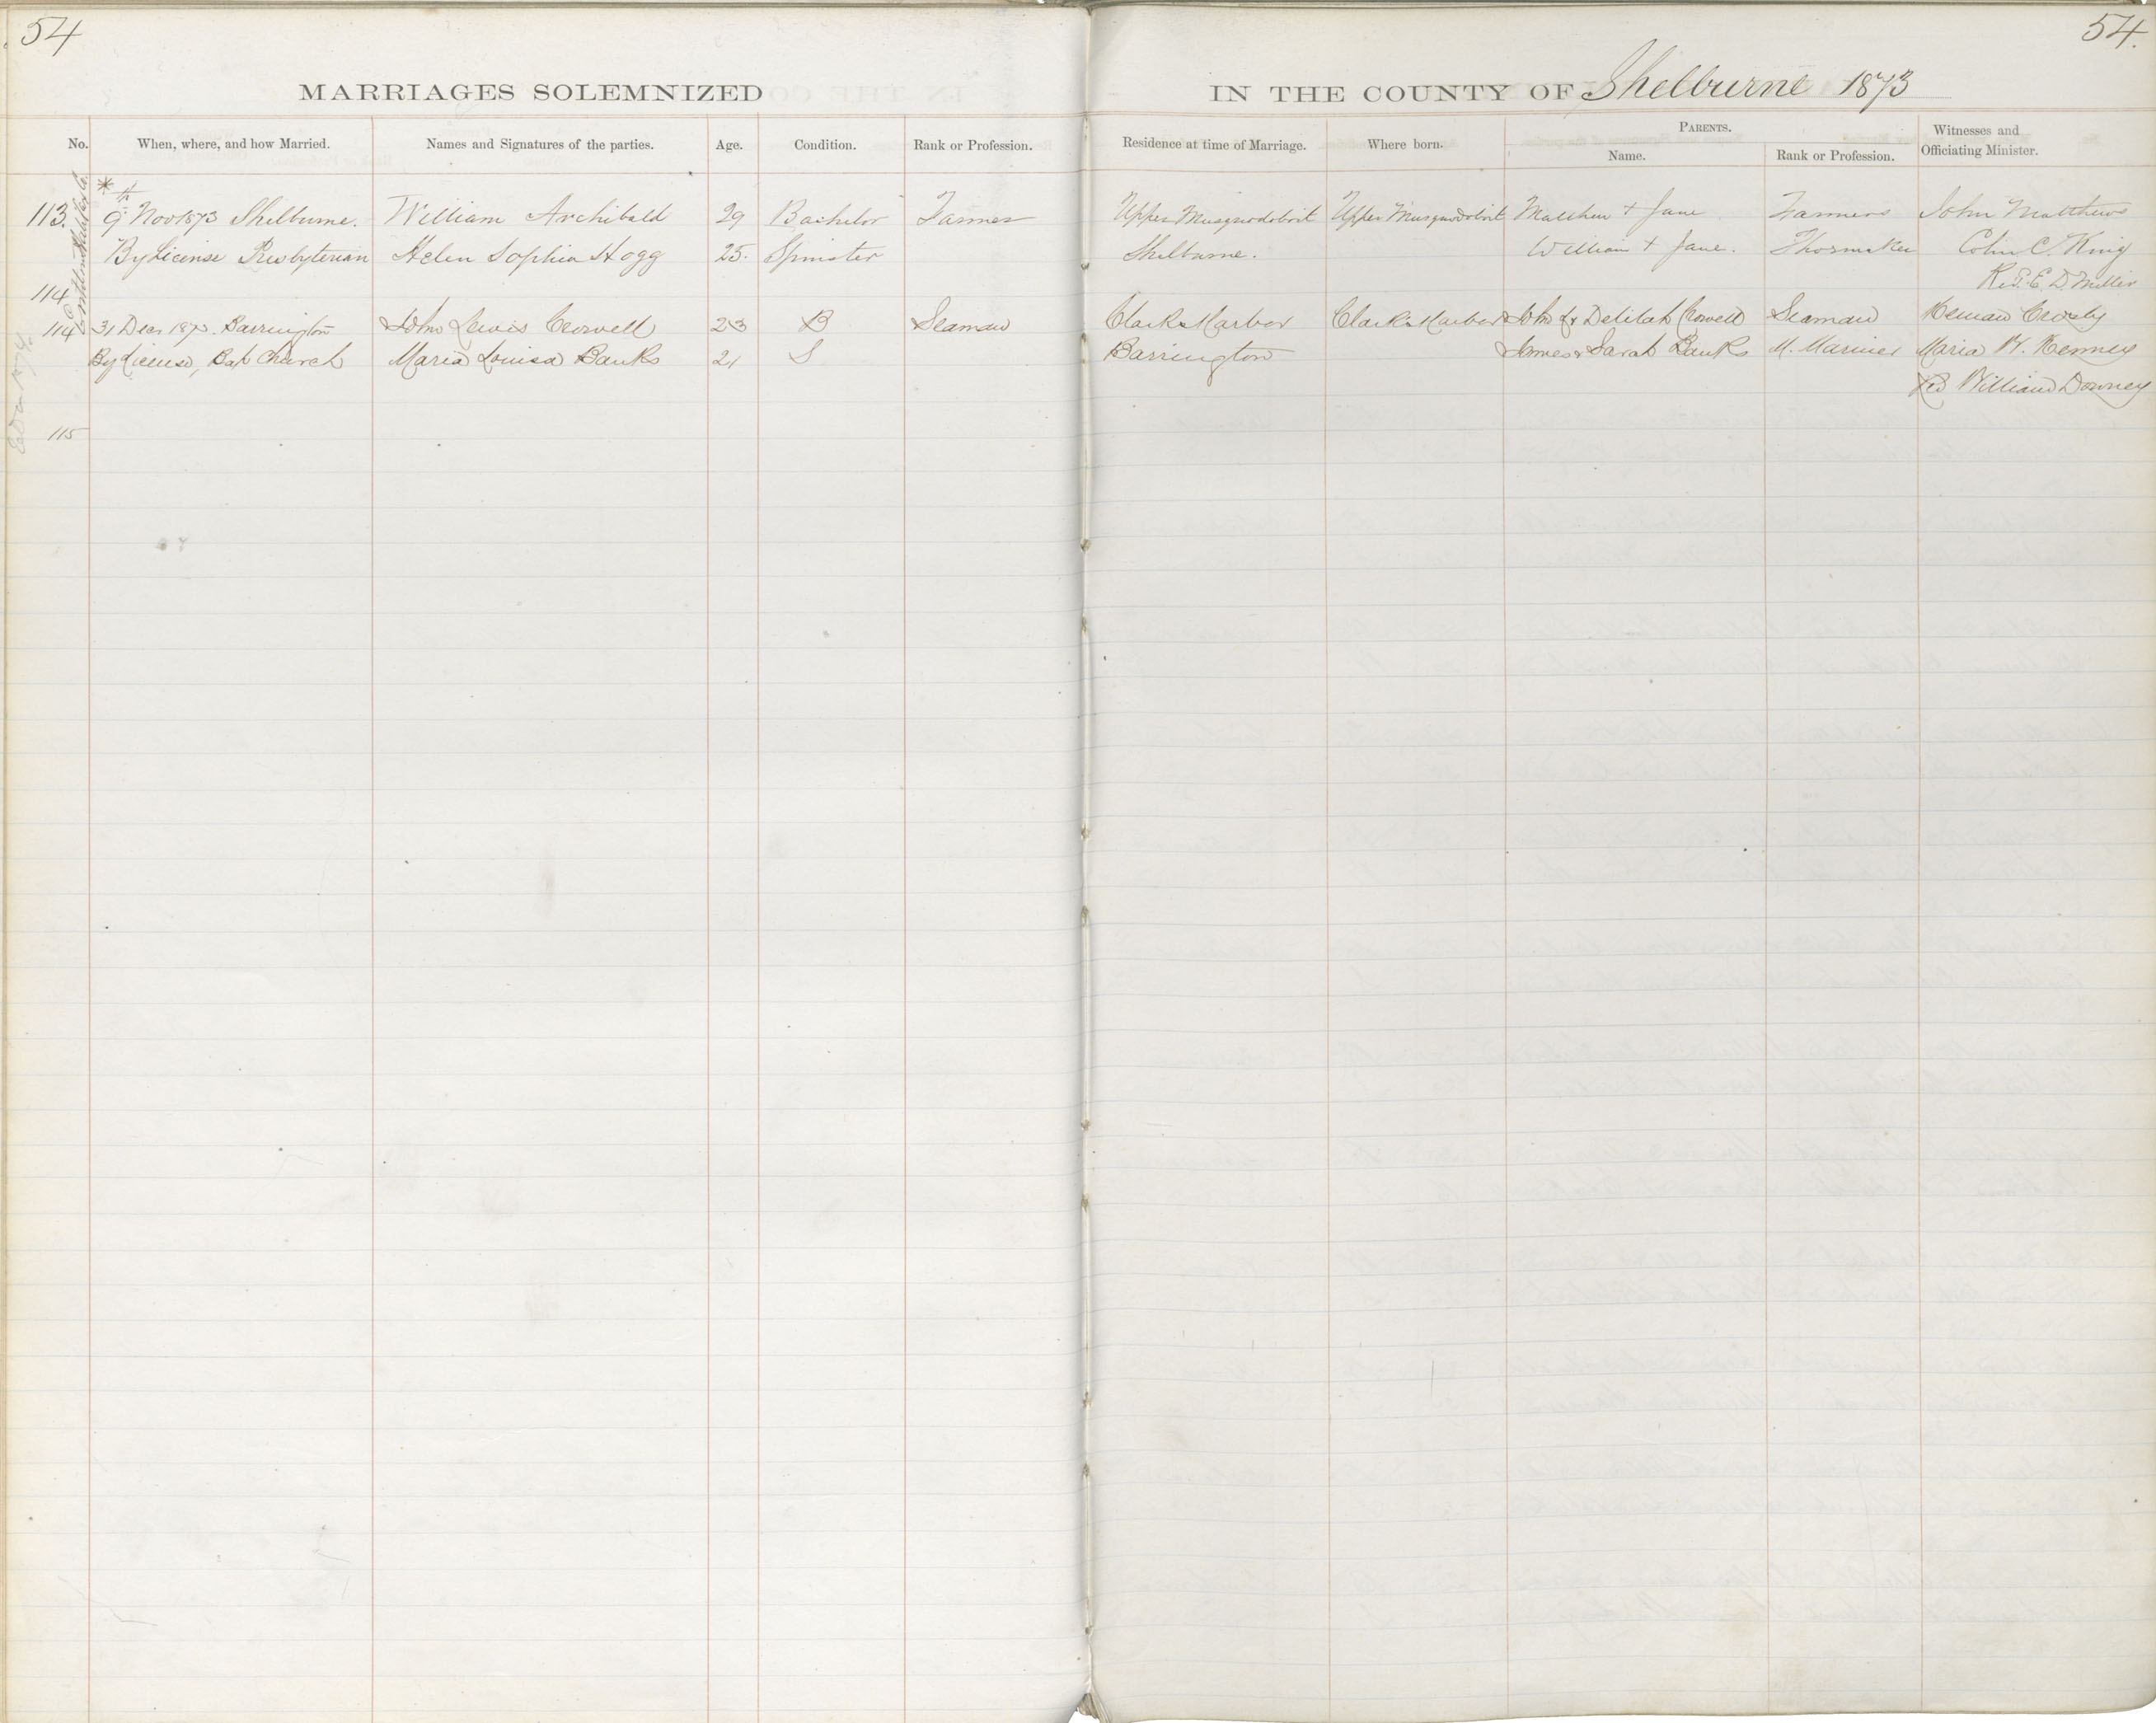 54
54.
MARRIAGES SOLEMNIZED IN THE COUNTY OF Shelburne 1873
No. When, where, and how Married. Names and Signatures of the parties. Age. Condition. Rank or Profession. Residence at time of Marriage. Where born. PARENTS. Name. Rank or Profession. Witnesses and Officiating Minister.
113. * 9th Nov 1873 Shelburne. William Archibald 29 Bachelor Farmer Upper Musquodoboit Upper Musquodoboit Matthew + Jane Farmers John Matthews
By License Presbyterian Helen Sophia Hogg 25. Spinster Shelburne. William + Jane. Colin C. King
114 Rev. E. D. Miller
114 31 Decr 1873. Barrington John Lewis Crowell 23 B Seaman Clarks Harbor Clark's Harbor John & Delilah Crowell Seaman Heman Crosby
By License, Bap Church Maria Louisa Banks 21 S Barrington James & Sarah Banks M. Mariner Maria W. Kenney
Rev William Downey
115